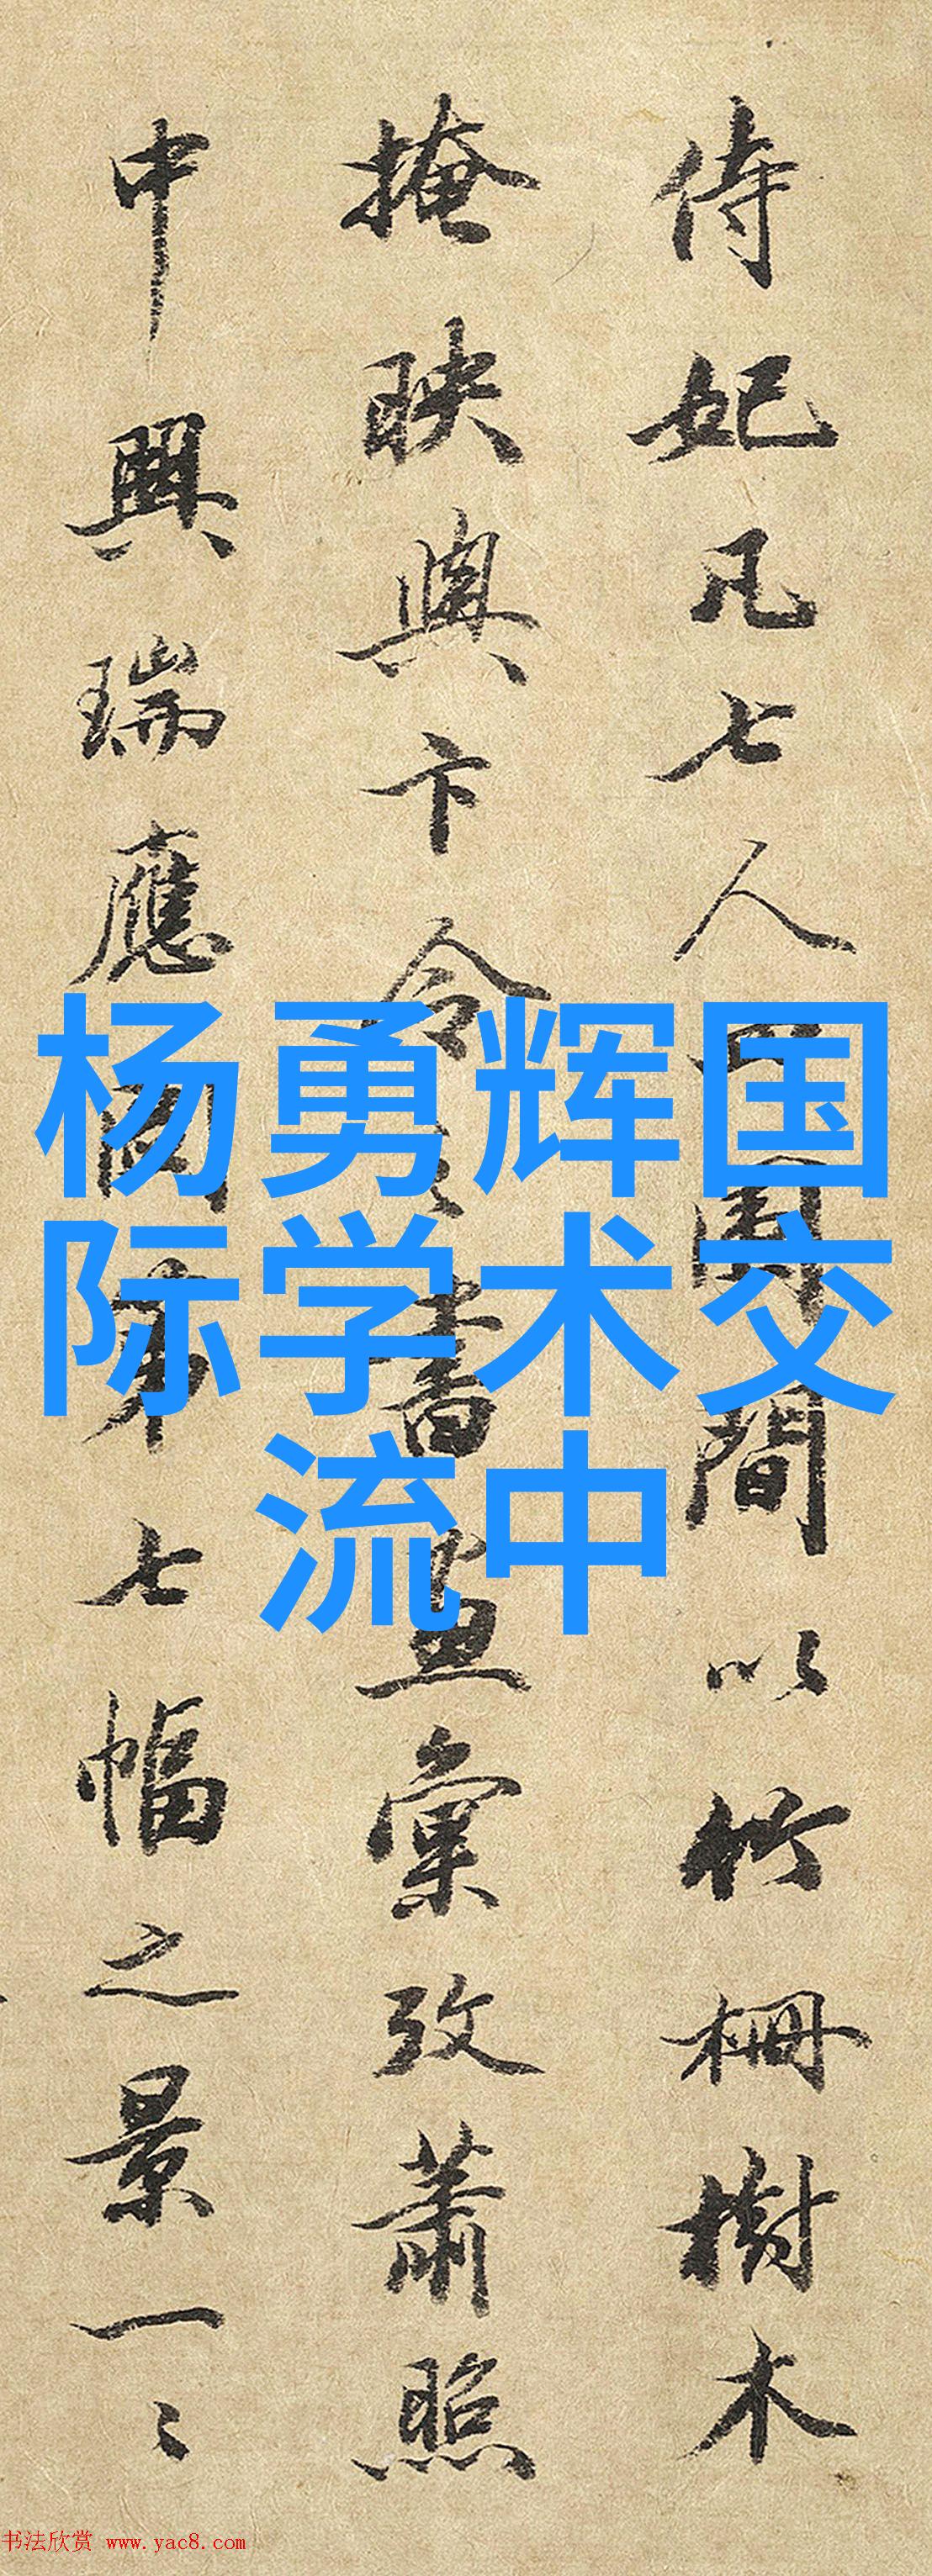 侍妃凡七人圍間以竹柵樹木
掩映與卞令之書畫彙攷蕭照
中興瑞應圖第七幅之景一〻
杨勇辉国
际学术交
流中
书法欣赏 www.yac8.com